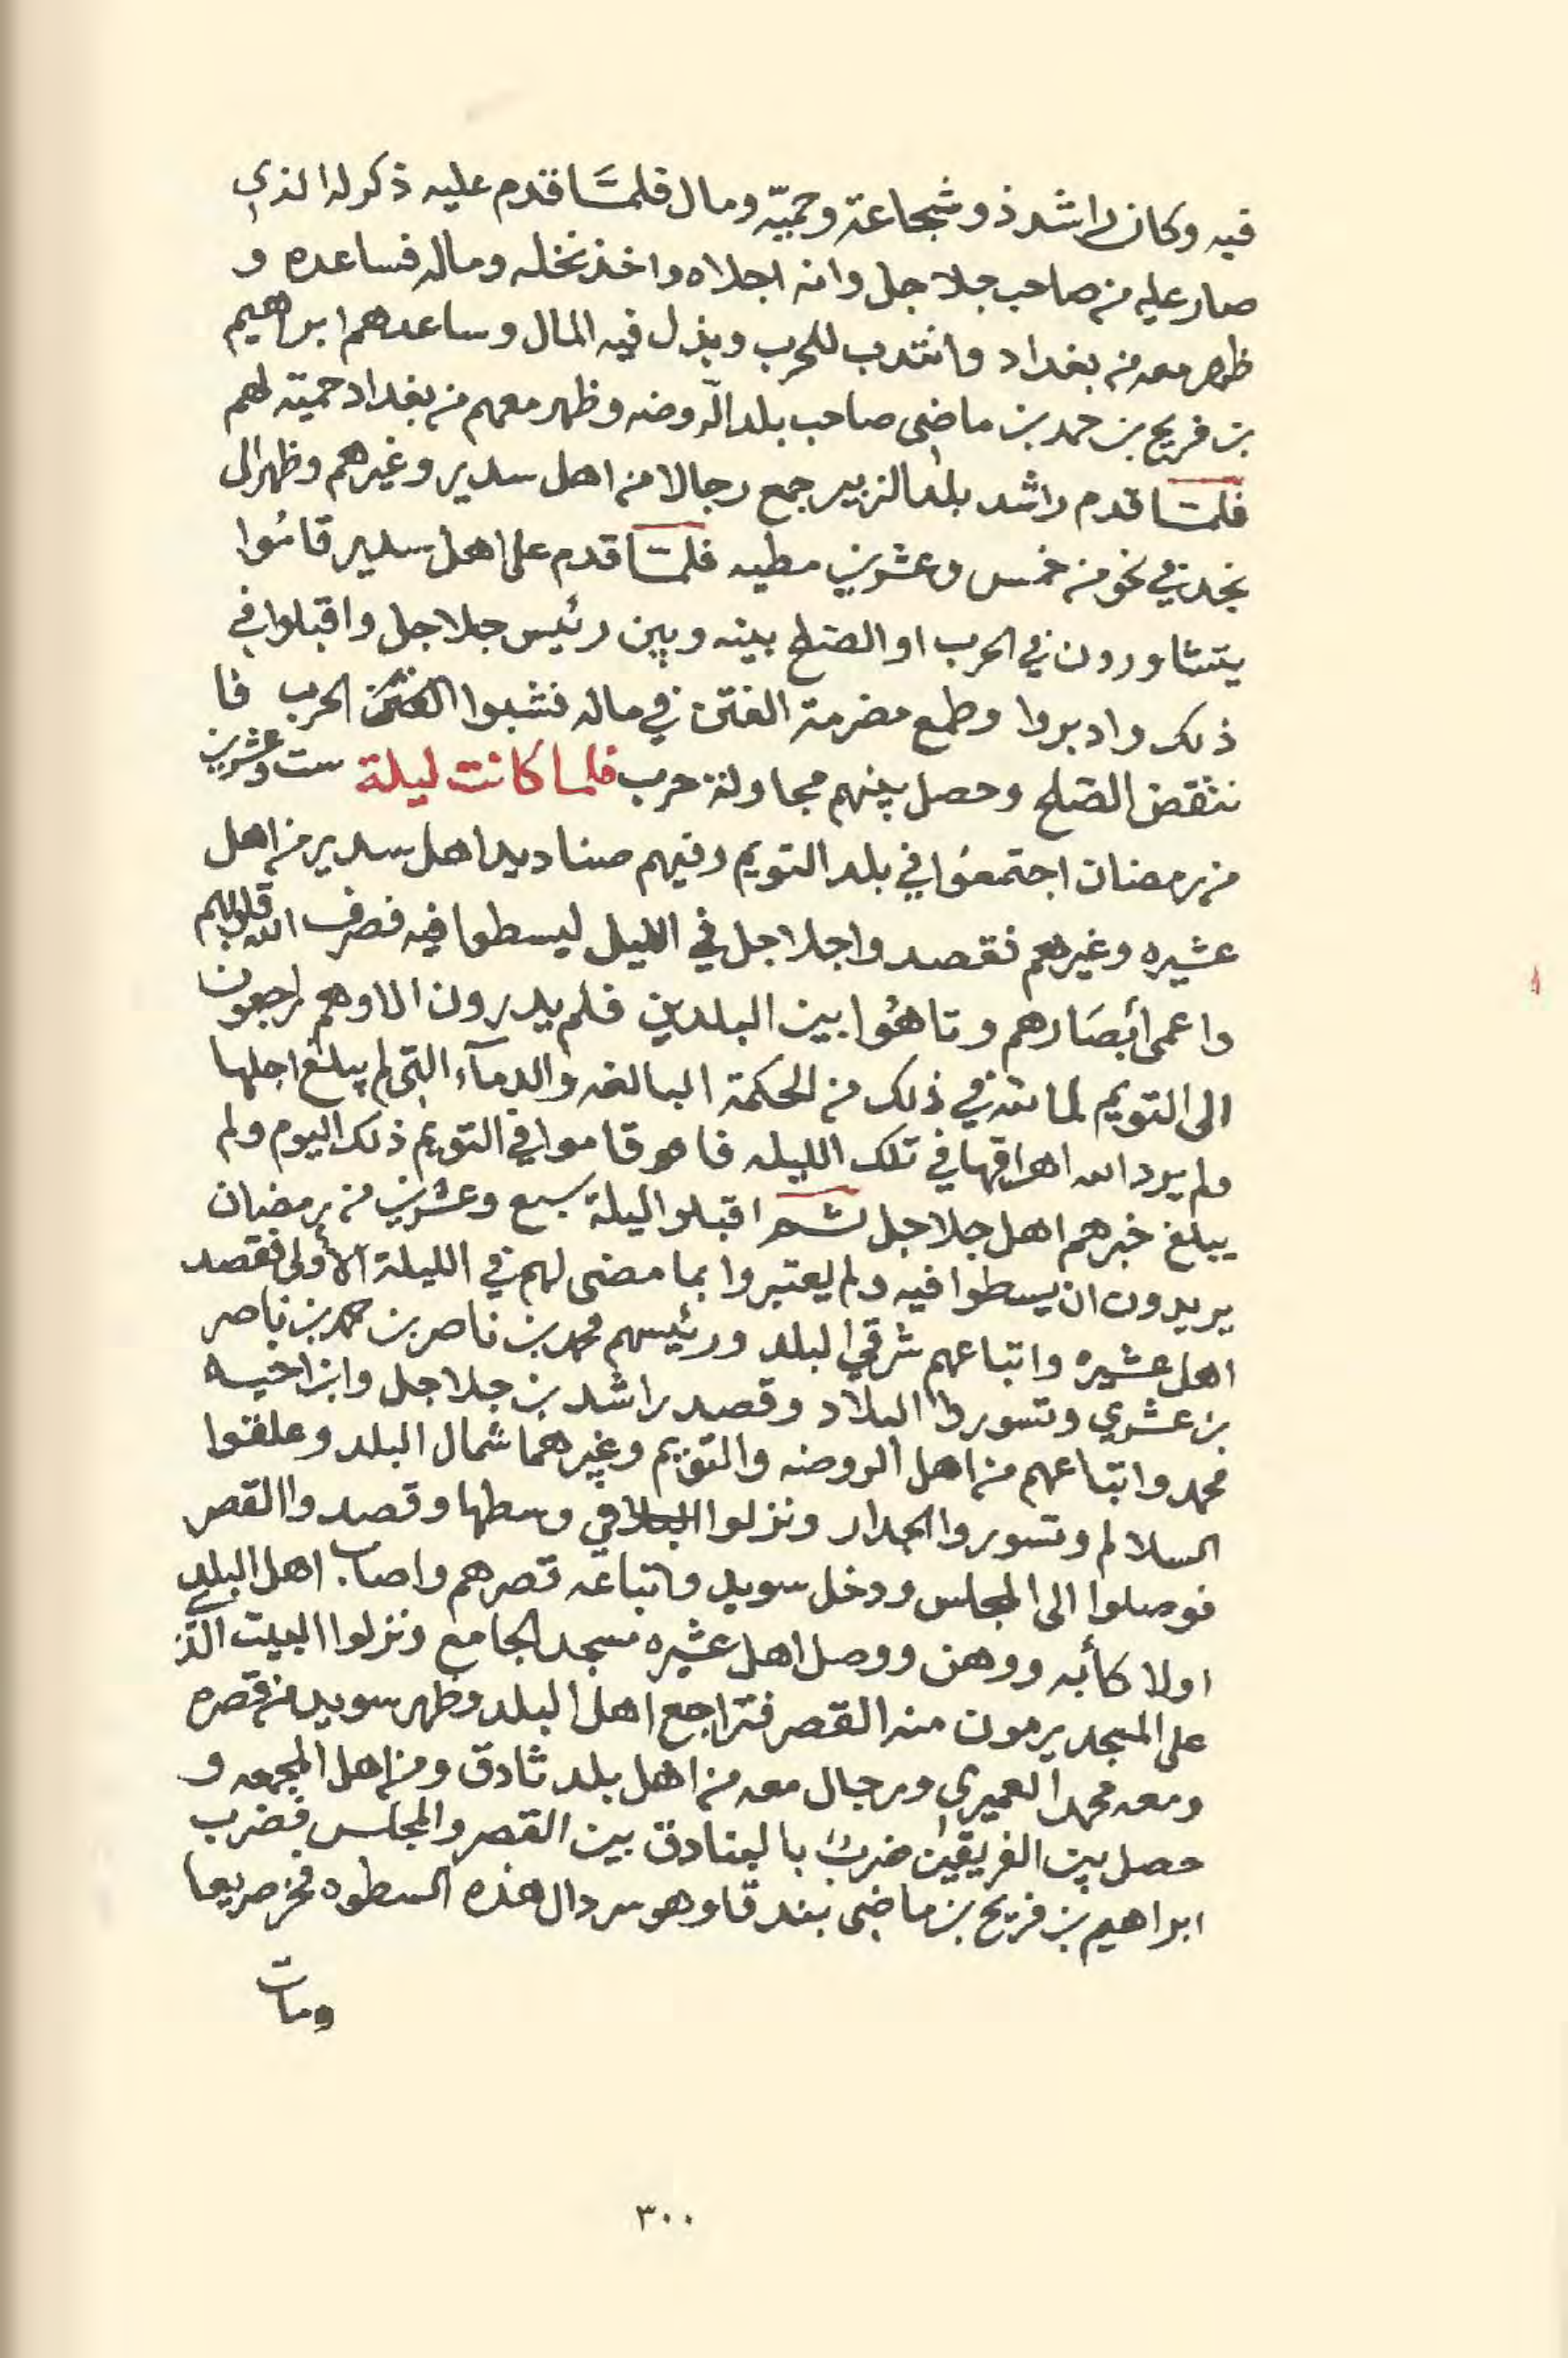 فيه وكان راشد ذو شجاعة وحميّه ومال فلمّا قدم عليه ذكر له الذي
صار عليه من صاحب جلاجل وانه اجلاه واخذ نخله وماله فساعده و
ظهر معه من بغداد وانتدب للحرب وبذل فيه المال وساعدهم ابراهيم
بن فريح بن حمد بن ماضي صاحب بلد الروضه وظهر معهم من بغداد حمية لهم
فلمّا قدم راشد بلد الزبير جمع رجالا من اهل سدير وغيرهم وظهر الى
نجد في نحو من خمس وعشرين مطيه فلمّا قدم على اهل سدير قامُوا
يتشاورون في الحرب او الصلح بينه وبين رئيس جلاجل واقبلوا في
ذلك وادبروا وطمع مضرمة الفتن في ماله فشبوا الحرب فا
نتقض الصلح وحصل بينهم مجاولة حرب فلما كانت ليلة ست وعشرين
من رمضان اجتمعُوا في بلد التويم وفيهم صناديد اهل سدير من اهل
عشيره وغيرهم فقصدوا جلاجل في الليل ليسطوا فيه فصرف الله قلوبهم
واعمى أبصَارهم وتاهُوا بين البلدين فلم يدرون الا وهم راجعون
الى التويم لما لله في ذلك من الحكمة البالغه والدمآء التي لم يبلغ اجلها
ولم يرد الله اهراقها في تلك الليله فاهو قاموا في التويم ذلك اليوم ولم
يبلغ خبرهم اهل جلاجل ثم اقبلوا ليلة سبع وعشرين من رمضان
يريدون ان يسطوا فيه ولم يعتبروا بما مضى لهم في الليلة الأولى فقصد
اهل عشيره واتباعهم شرقي البلد ورئيسهم محمد بن ناصر بن حمد بن ناصر
بن عشري وتسوروا البلاد وقصد راشد بن جلاجل وابن اخيه
محمد واتباعهم من اهل الروضه والتويم وغيرهما شمال البلد وعلقوا
السلالم وتسوروا الجدار ونزلوا في وسطها وقصدوا القصر
فوصلوا الى المجلس ودخل سويد واتباعه قصرهم واصاب اهل البلد
اولا كأبه ووهن ووصل اهل عشيره مسجد الجامع ونزلوا البيت الذي
على المسجد يرمون منه القصر فتراجع اهل البلد وظهر سويد من قصره
ومعه محمد العميري ورجال معه من اهل بلد ثادق ومن اهل المجمعه و
حصل بين الفريقين ضربٌ بالبنادق بين القصر والمجلس فضرب
ابراهيم بن فريح بن ماضي بندقا وهو سردال هذه السطوه فخر صريعا
ومات
٣٠٠